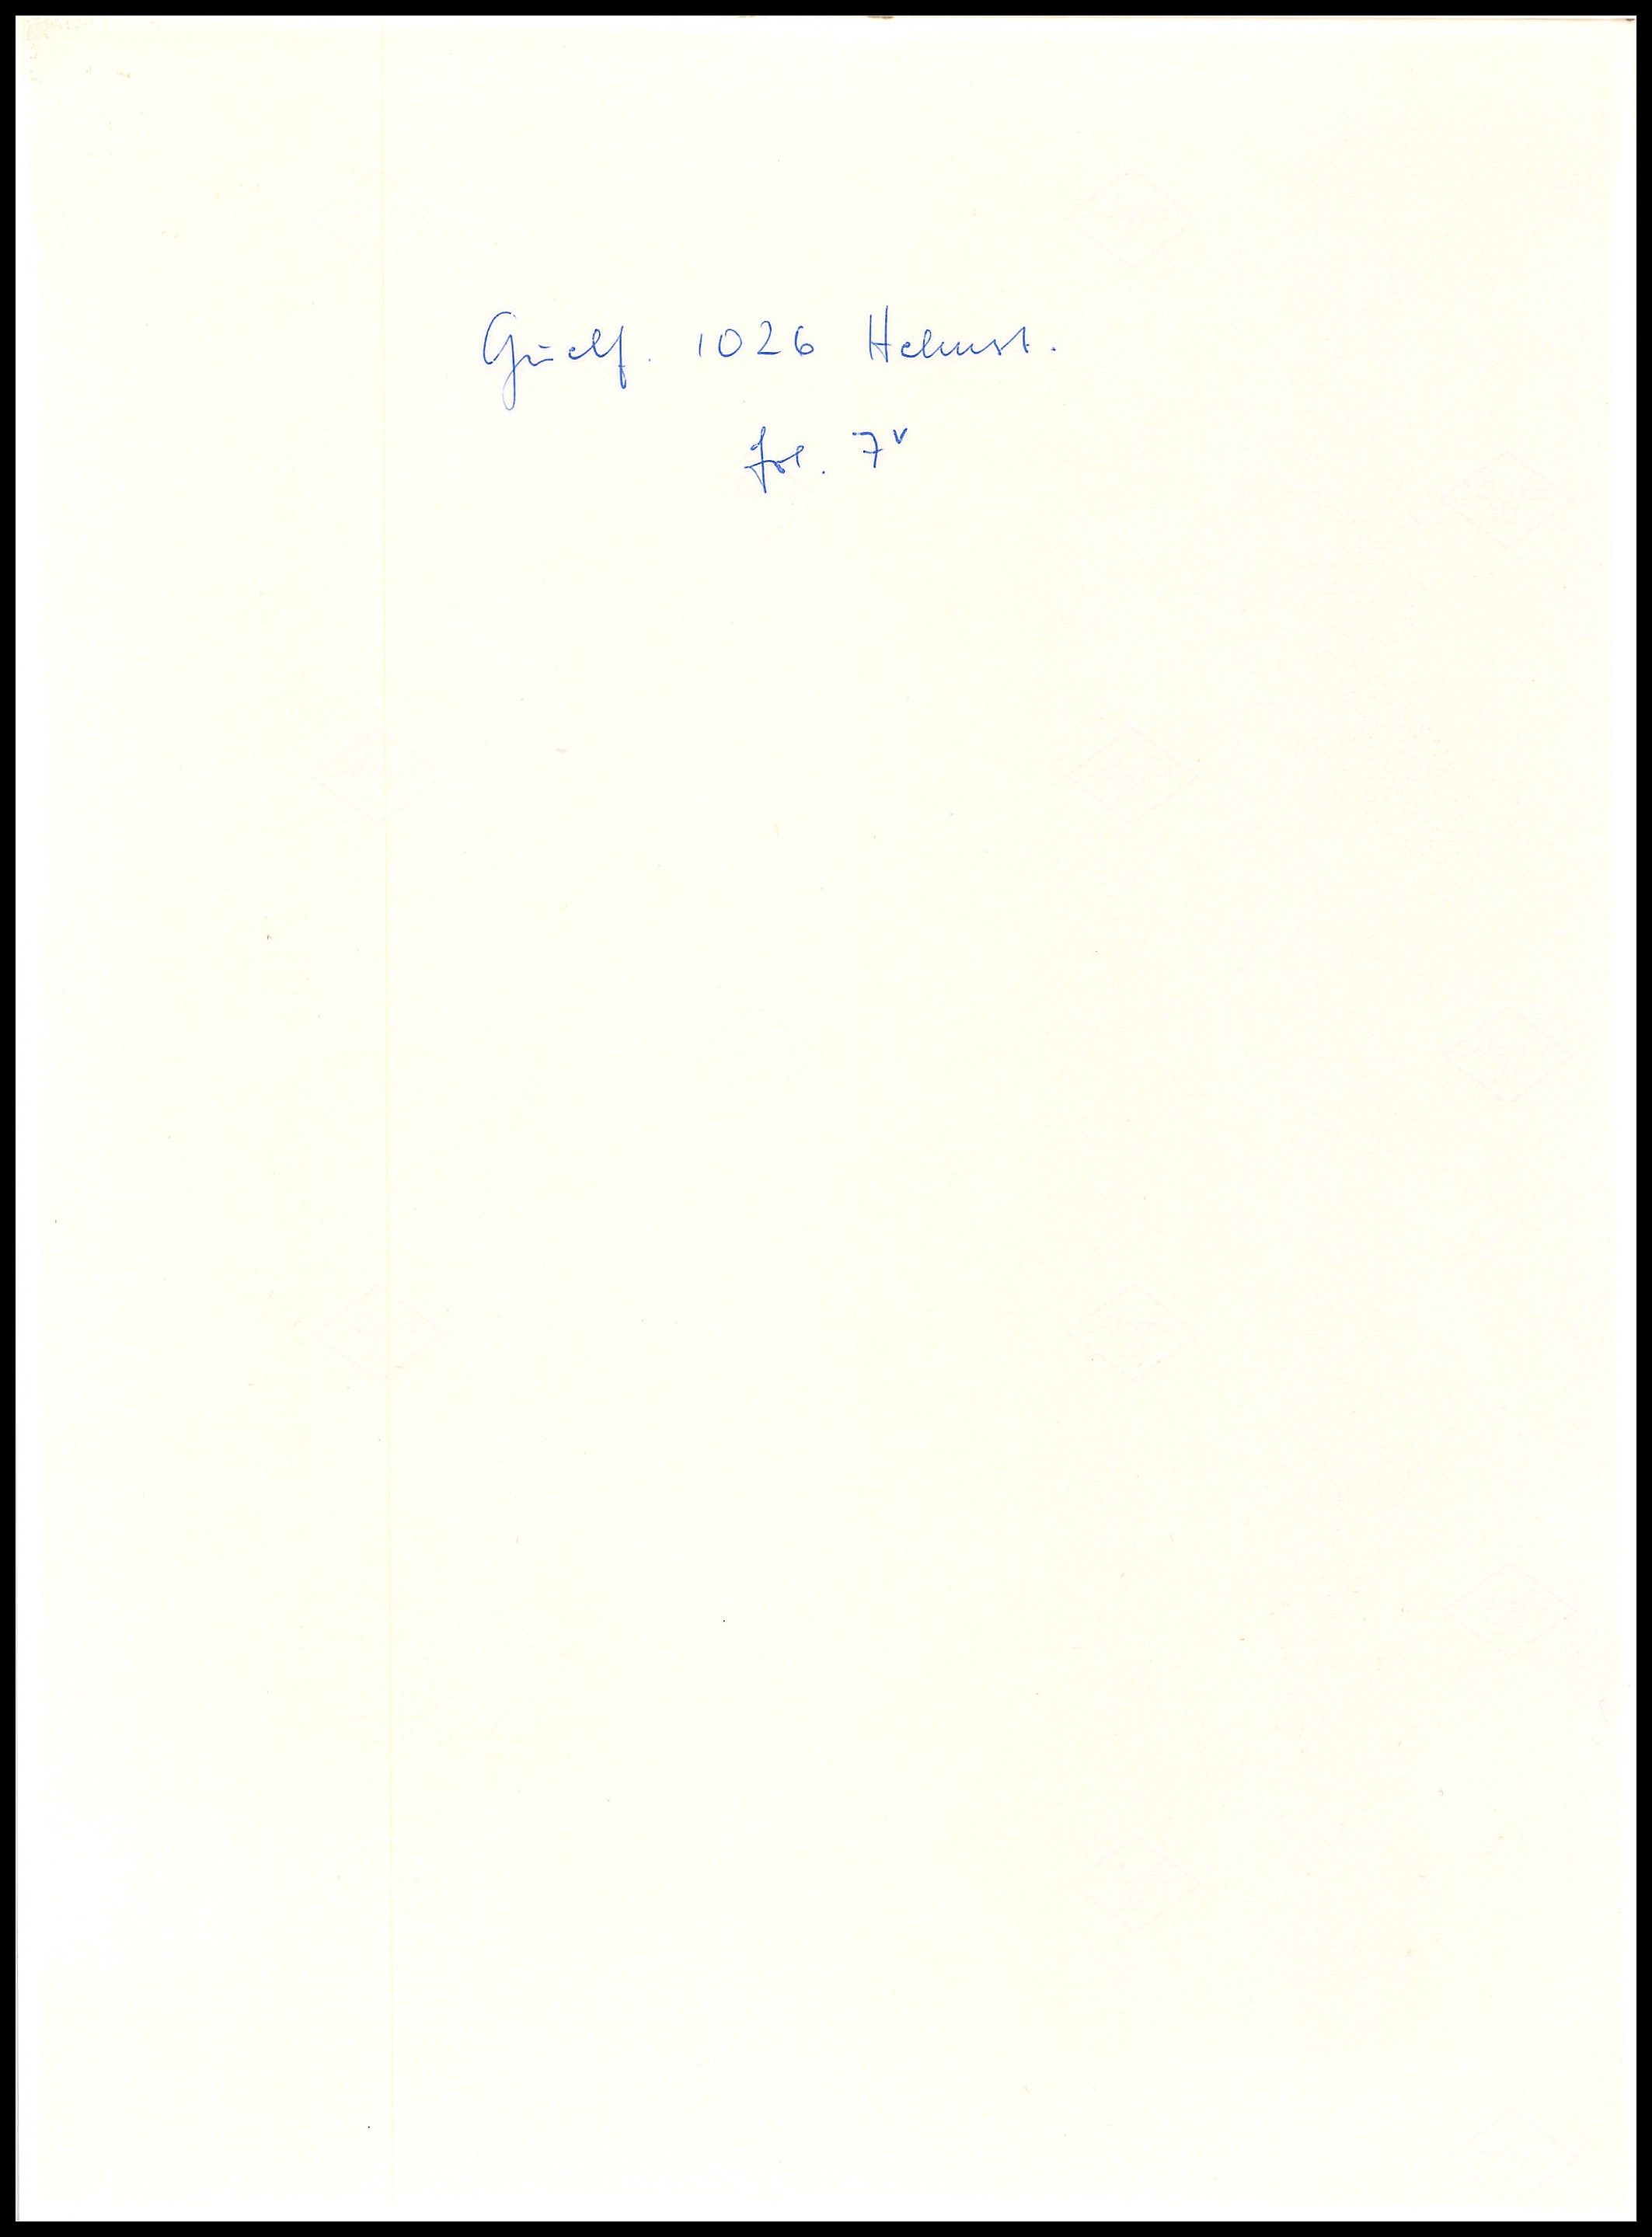 Guelf. 1026 Helmst.
fol. 7v